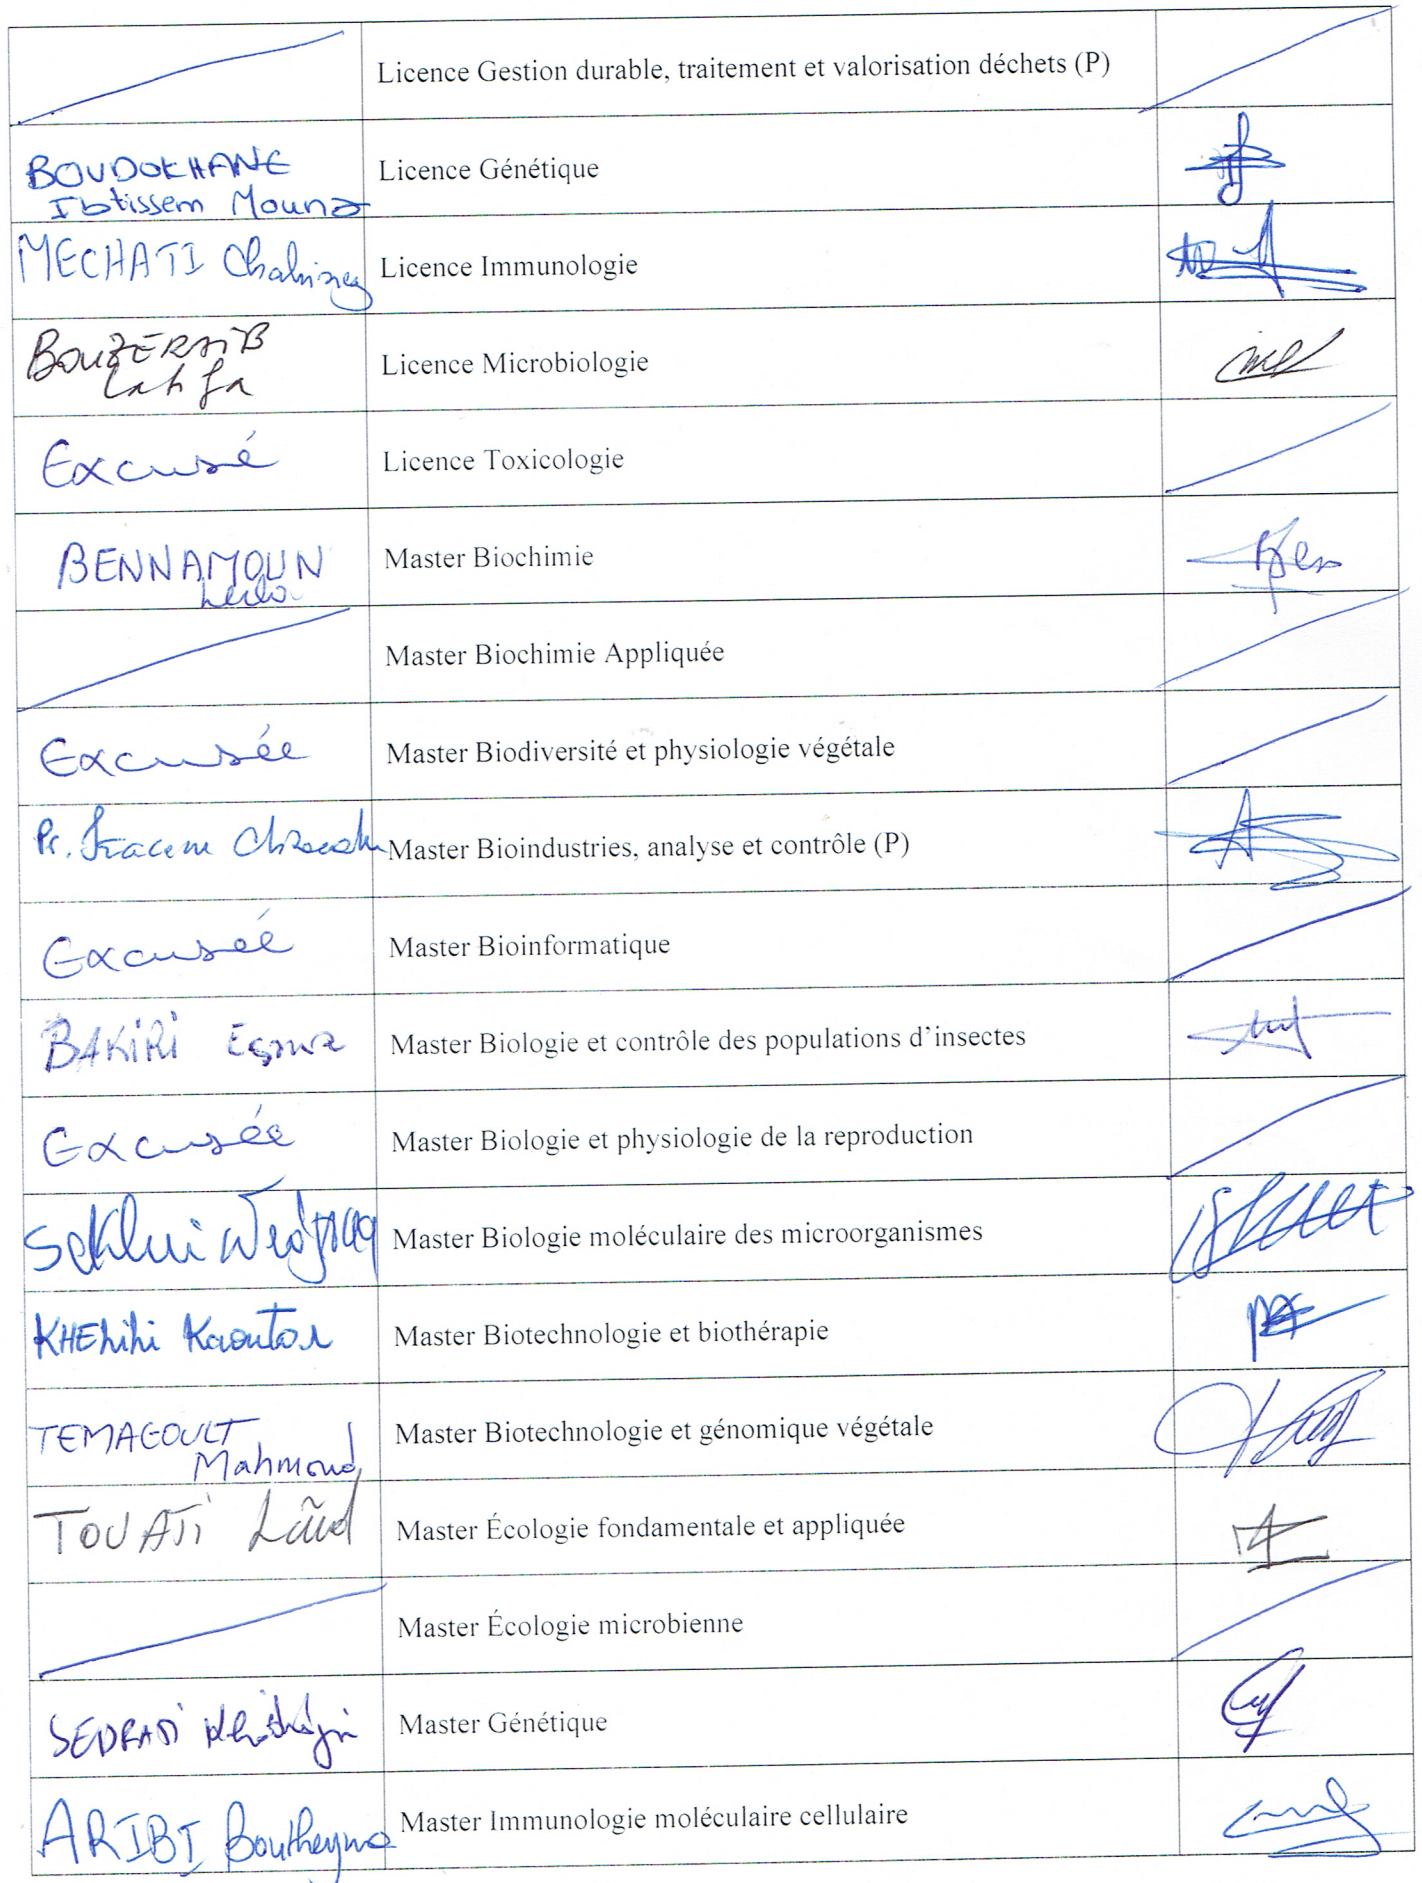 Licence Gestion durable, traitement et valorisation déchets (P)
BOUDOKHANE
Ibtissem Mouna
Licence Génétique
MECHATI
Licence Immunologie
BOUZERAIB
Latifa
Licence Microbiologie
Excusé
Licence Toxicologie
BENNAMOUN
Leila
Master Biochimie
Master Biochimie Appliquée
Excusée
Master Biodiversité et physiologie végétale
Pr. Kacem
Master Bioindustries, analyse et contrôle (P)
Excusée
Master Bioinformatique
BAKIRI Esma
Master Biologie et contrôle des populations d'insectes
Excusée
Master Biologie et physiologie de la reproduction
Master Biologie moléculaire des microorganismes
KHELifi Kaoutar
Master Biotechnologie et biothérapie
TEMAGOULT
Mahmoud
Master Biotechnologie et génomique végétale
TOUATI Laïd
Master Écologie fondamentale et appliquée
Master Écologie microbienne
SEDRATI
Master Génétique
ARIBI Boutheyna
Master Immunologie moléculaire cellulaire